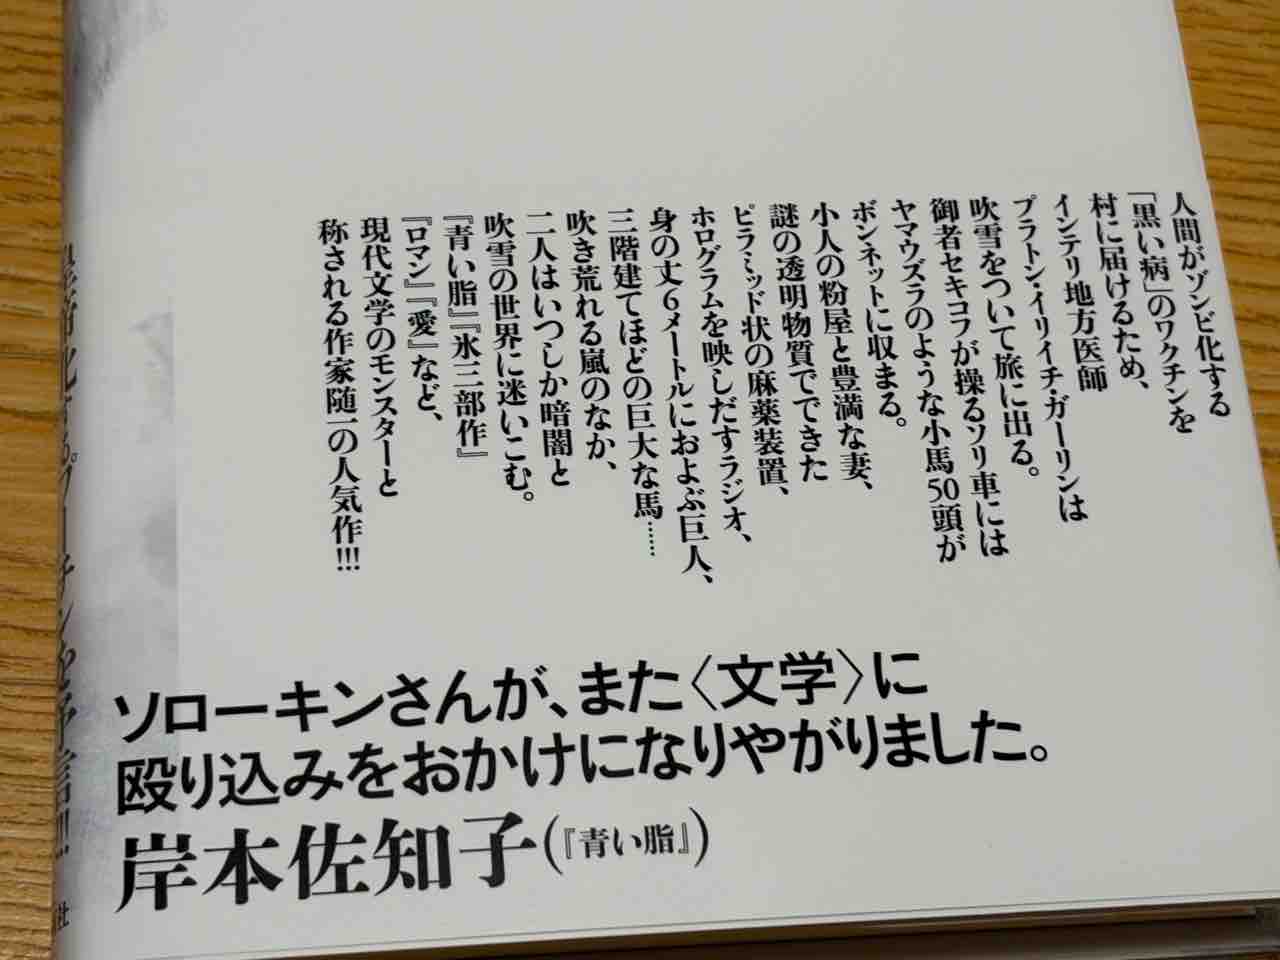 人間がゾンビ化する
「黒い病」のワクチンを
村に届けるため、
インテリ地方医師
プラトン・イリイチ・ガーリンは
吹雪をついて旅に出る。
御者セキコフが操るソリ車には
ヤマウズラのような小馬50頭が
ボンネットに収まる。
小人の粉屋と豊満な妻、
謎の透明物質でできた
ピラミッド状の麻薬装置、
ホログラムを映しだすラジオ、
身の丈6メートルにおよぶ巨人、
三階建てほどの巨大な馬……
吹き荒れる嵐のなか、
二人はいつしか暗闇と
吹雪の世界に迷いこむ。
『青い脂』『氷三部作』
『ロマン』『愛』など、
現代文学のモンスターと
称される作家随一の人気作!!!
ソローキンさんが、また〈文学〉に
殴り込みをおかけになりやがりました。
岸本佐知子(『青い脂』)
社